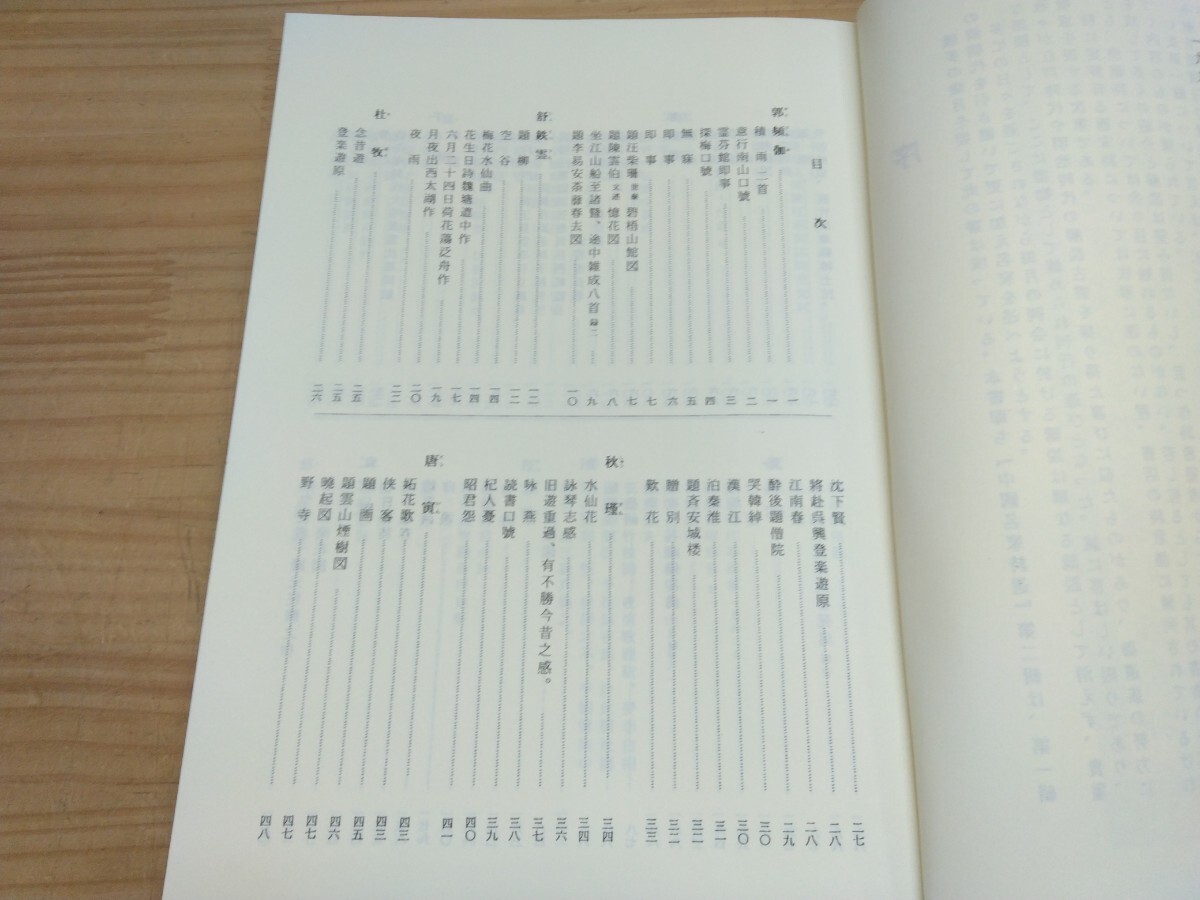 目次
郭頻伽 一
積雨二首 一
意行南山口號 二
霊芬館即事 三
探梅口號 四
無寐 五
即事 六
即事 七
題汪柴珊 碧梧山館図 七
題陳雲伯 文述 憶花図 八
坐江山船至諸曁、途中雑成八首 録二 九
題李易安荼蘼春去図 一〇
舒鉄雲 一二
題柳 一二
空谷 一四
梅花水仙曲 一四
花生日詩魏塘道中作 一七
六月二十四日荷花蕩泛舟作 一九
月夜出西太湖作 二〇
夜雨 二二
杜牧 二五
念昔遊 二五
登楽遊原 二六
沈下賢 二七
将赴呉興登楽遊原 二八
江南春 二八
酔後題僧院 二九
哭韓綽 三〇
漢江 三〇
泊秦淮 三一
題斉安城楼 三二
贈別 三二
歎花 三三
秋瑾 三四
水仙花 三四
詠琴志感 三六
旧遊重過、有不勝今昔之感。 三七
咏燕 三八
読書口號 三九
杞人憂 四〇
昭君怨 四一
唐寅 四三
妬花歌 四三
侠客 四五
題画 四六
題雲山煙樹図 四七
暁起図 四七
野寺 四八